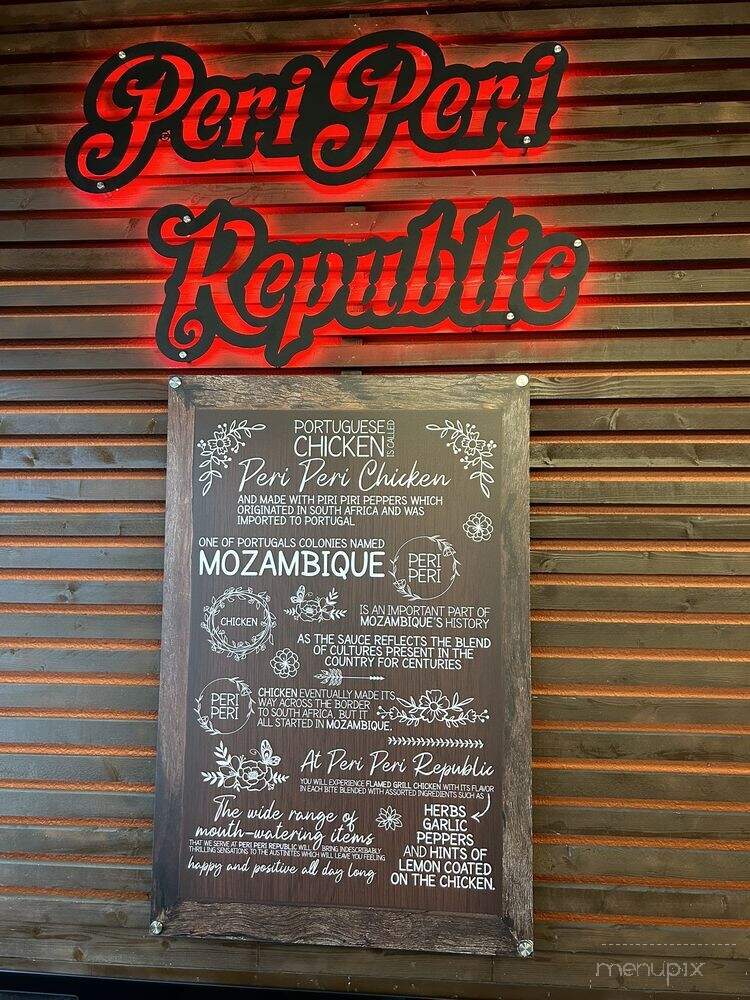 Peri Peri
Republic
PORTUGUESE
CHICKEN IS CALLED
Peri Peri Chicken
AND MADE WITH PIRI PIRI PEPPERS WHICH
ORIGINATED IN SOUTH AFRICA AND WAS
IMPORTED TO PORTUGAL
ONE OF PORTUGALS COLONIES NAMED
MOZAMBIQUE
PERI
PERI
CHICKEN
IS AN IMPORTANT PART OF
MOZAMBIQUE'S HISTORY
AS THE SAUCE REFLECTS THE BLEND
OF CULTURES PRESENT IN THE
COUNTRY FOR CENTURIES
PERI
PERI
CHICKEN EVENTUALLY MADE ITS
WAY ACROSS THE BORDER
TO SOUTH AFRICA, BUT IT
ALL STARTED IN MOZAMBIQUE.
At Peri Peri Republic
YOU WILL EXPERIENCE FLAMED GRILL CHICKEN WITH ITS FLAVOR
IN EACH BITE BLENDED WITH ASSORTED INGREDIENTS SUCH AS
HERBS
GARLIC
PEPPERS
AND HINTS OF
LEMON COATED
ON THE CHICKEN.
The wide range of
mouth-watering items
THAT WE SERVE AT PERI PERI REPUBLIC WILL BRING INDESCRIBABLY
THRILLING SENSATIONS TO THE AUSTINITES WHICH WILL LEAVE YOU FEELING
happy and positive all day long
menupix